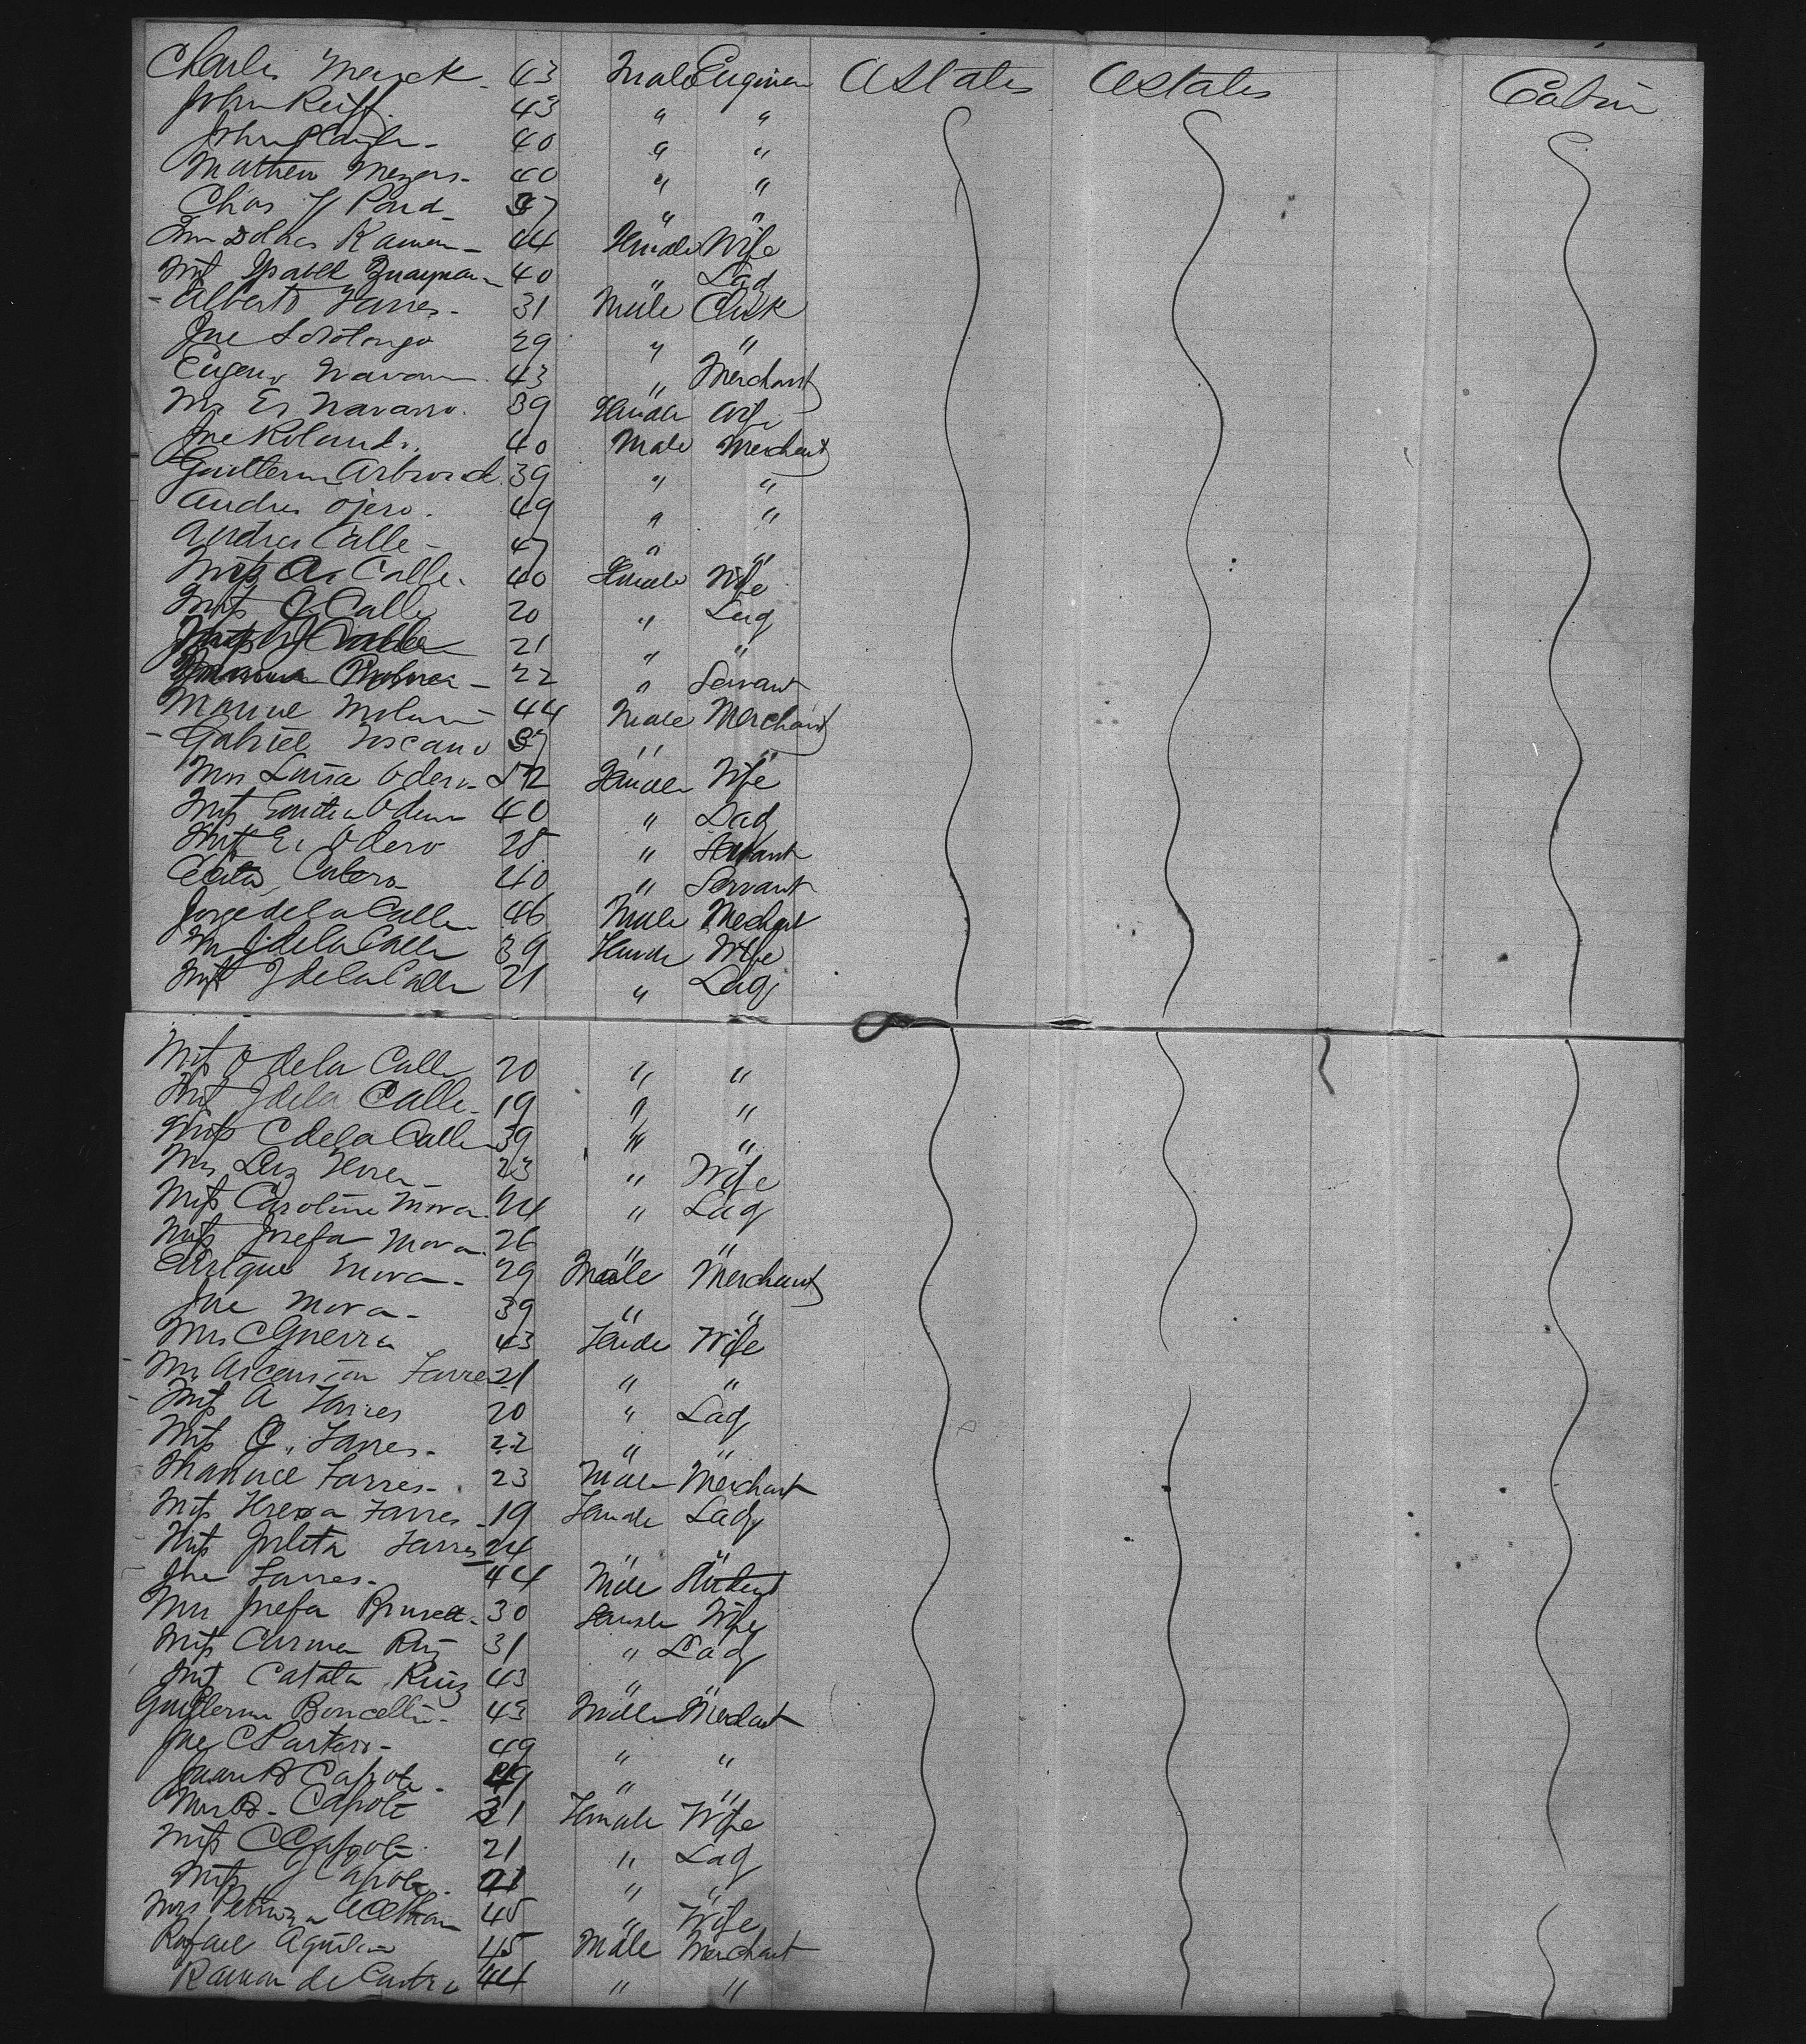 Charles Merick - 43 Male Engineer U States U States Cabin
John Reiff. 43 " "
John - 40 " "
Mathew Meyers - 40 " "
Chas Pond - 37 " "
Dolores Ramon - 44 Female Wife
Miss Ysabel - 40 " Lady
- Alberto Farres - 31 Male Clerk
Jose Sotolongo 29 " "
Eugenio Navarro 43 " Merchant
Mrs E. Navarro. 39 Female Wife
Jose Roland 40 Male Merchant
Guillermo 39 " "
Andres Ojero. 49 " "
Andres Calle - 47 " "
Miss A. Calle. 40 Female Wife
Miss J Calle 20 " Lady
Miss Calle 21 " "
- 22 " Servant
Manuel - 44 Male Merchant
- Gabriel Toscano 37 " "
Mrs Luisa Odero - 52 Female Wife
Miss Odero 40 " Lady
Miss E. Odero 28 " Servant
40 " Servant
Jorge de la Calle 46 Male Mechant
Mrs J de la Calle 39 Female Wife
Miss J de la Calle 21 " Lady
Miss O de la Calle 20 " "
Miss J de la Calle - 19 " "
Miss C de la Calle 39 " "
Mrs Luz - 23 " Wife
Miss Caroline Mora. 24 " Lady
Miss Josefa Mora. 26 " "
Enrique Mora - 29 Male Merchant
Jose Mora - 39 " "
Mrs C Guerra 43 Female Wife
- Mrs Ascension Farres 21 " "
- Miss A Farres 20 " Lady
- Miss J. Farres - 22 " "
- Manuel Farres - 23 Male Merchant
- Miss Teresa Farres - 19 Female Lady
- Miss Julieta Farres 24 " "
- Jose Farres - 44 Male Student
Mrs Josefa - 30 Female Wife
Miss Carmen Ruiz 31 " Lady
Miss Catala Ruiz 43 " "
Guillermo Boncelli - 43 Male Merchant
Jose C Partero - 49 " "
Juan B Capote - 49 " "
Mrs B - Capote 31 Female Wife
Miss C Capote 21 " Lady
Miss J Capote. 21 " "
Mrs 45 " Wife
Rafael Aguilar 45 Male Merchant
Ramon de Castro 44 " "